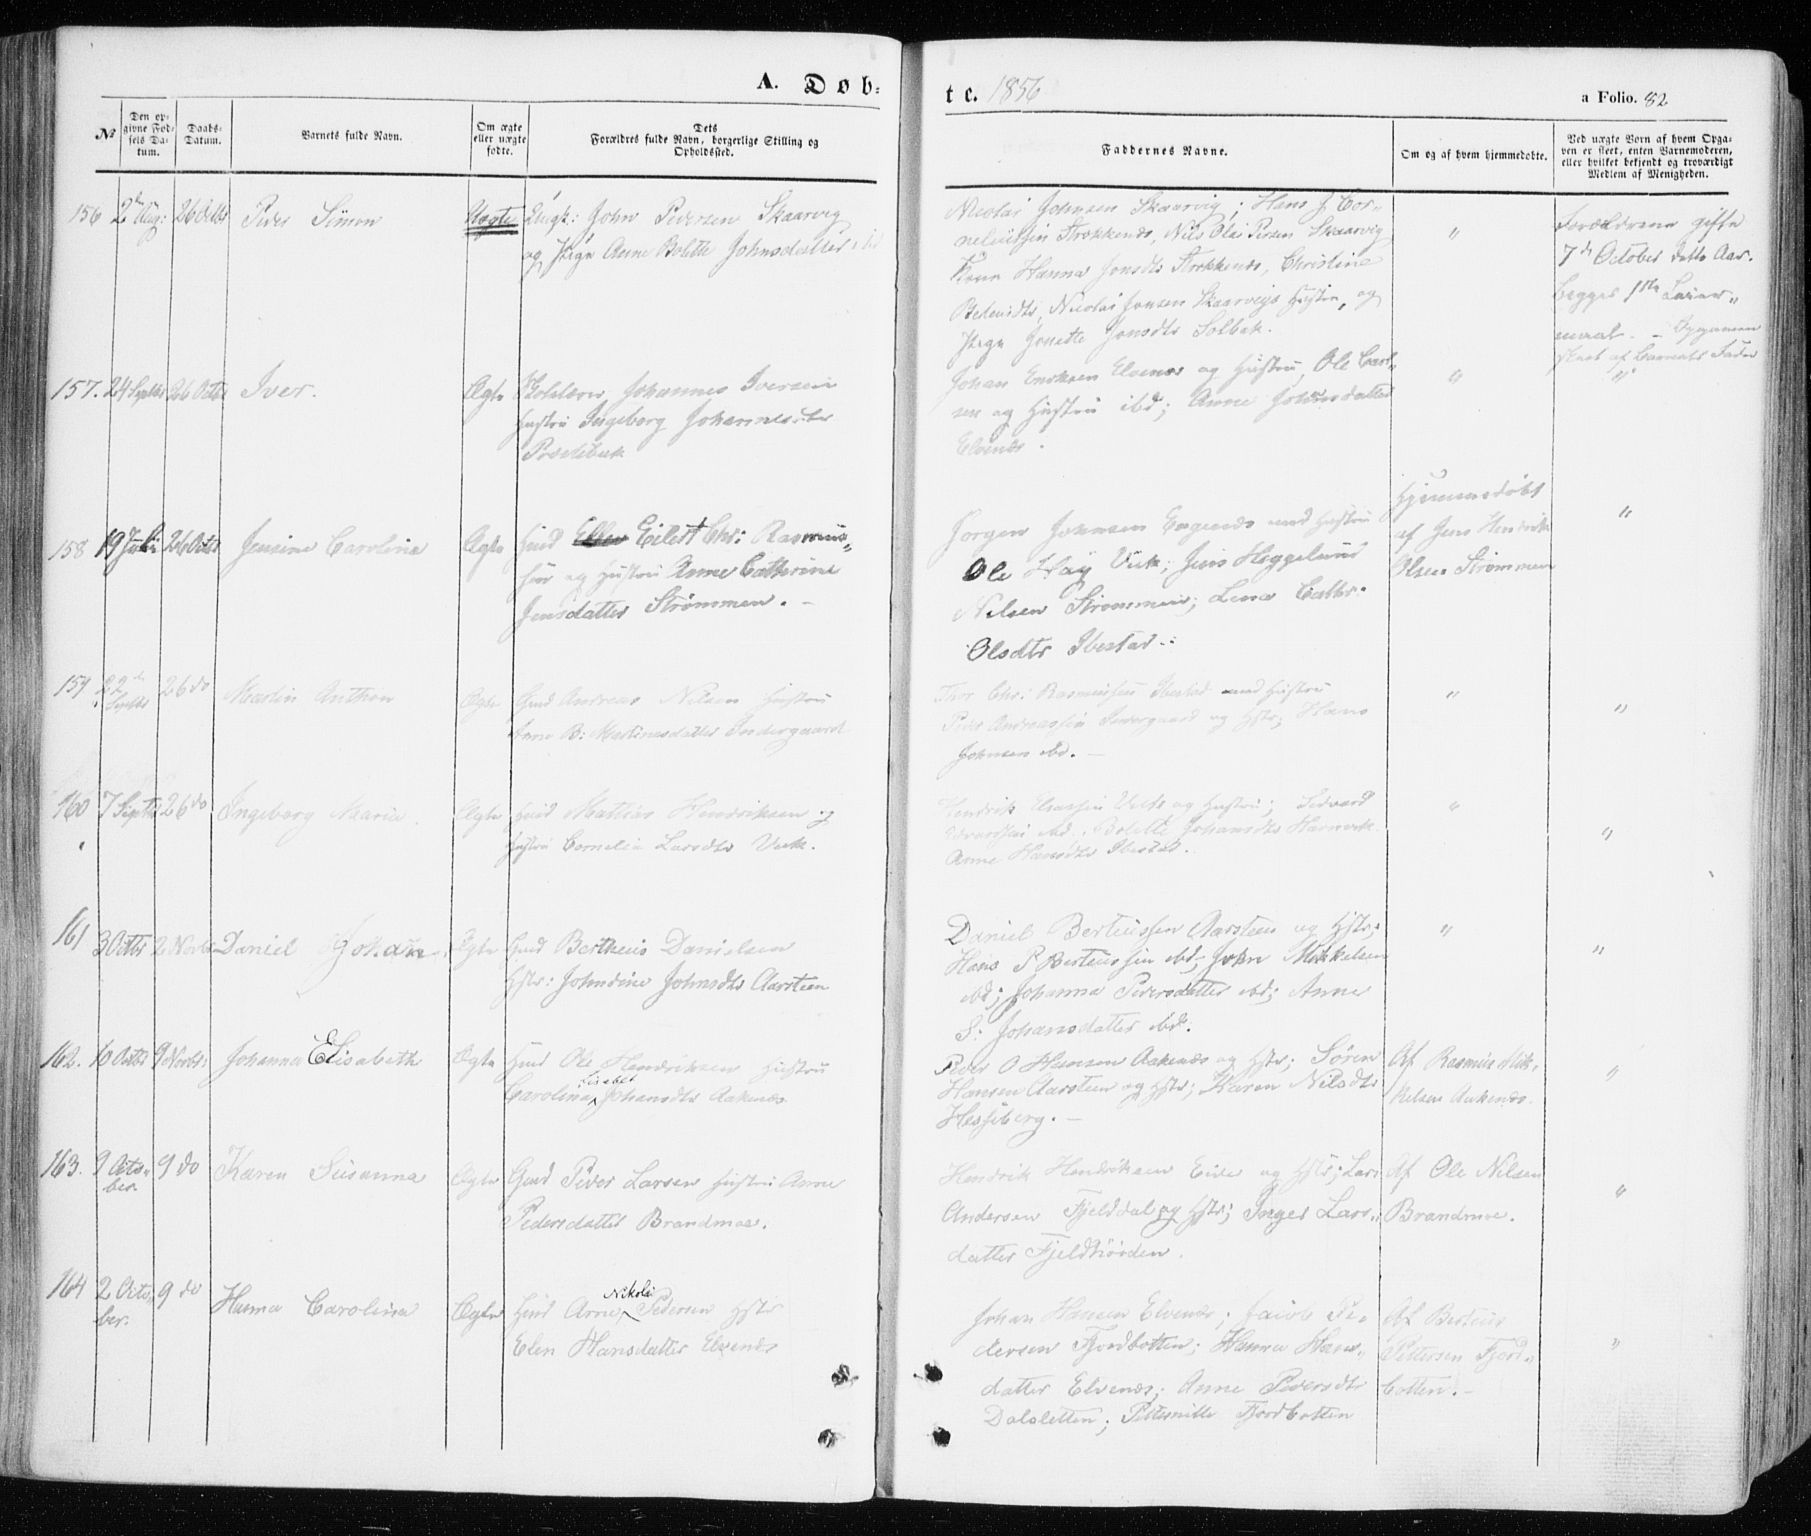 A. Døb-
te. 1856
a Folio. 82
№
Den op-
givne Fød-
sels Da-
tum.
Daabs-
Datum.
Barnets fulde Navn.
Om ægte
eller uægte
fødte.
Dets
Forældres fulde Navn, borgerlige Stilling og
Opholdssted.
Faddernes Navne.
Om og af hvem hjemmedøbte.
Ved uægte Børn af hvem Opga-
ven er skeet, enten Barnemoderen,
eller hvilket bekjendt og troværdigt
Medlem af Menigheden.
156 2 Aug: 26 Octbr Peder Simon Uægte Ungk: John Pedersen Skaarvig
og Pige Anne Bolette Johnsdatter ibd
Nicolai Johnsen Skaarvig; Hans J. Cor-
neliussen Krokkenæs, Nils Olai Persen Skaarvig
Kone Hanna Jonsdtr Krokkenæs, Christine
Nicolai Jonsen Skaarvigs Hustru, og
Pige Jonette Jonsdtr Solbak.
"
Forældrene gifte
7de October dette Aar.
Begges 1ste Leier-
maal. –
skeet af Barnets Fader
157. 24 Septbr 26 Octbr Iver. Ægte Skolelærer Johannes Iversen
Hustru Ingeborg Johannesdtr
Prædebak
Johan Enoksen Elvenæs og Hustru, Ole Carl-
sen og Hustru ibd; Anne Johnsdatter
Elvenæs.
" "
158 19 Juli 26 Octbr Jensine Carolina Ægte Huusd Eilert Chr: Rasmus-
sen og Hustru Anne Catherine
Jensdatter Strømmen. –
Jørgen Johnsen Engenæs med Hustru
Ole Høy Viik; Jens Heggelund
Nilsen Strømmen; Lena Cathr.
Olsdtr Ibestad.
Hjemmedøbt
af Jens Hendrik
Olsen Strømmen
"
159 22de Septbr 26 do Martin Anthon Ægte Gmd Andreas Nilsen Hustru
Anne B: Martinusdatter Indergaard
Thor Chr: Rasmussen Ibestad med Hustru
Peder Andreassen Indergaard og Hstr; Hans
Johnsen ibd. –
" "
160 7 Septbr 26 do Ingeborg Maria. Ægte Huusd Mathias Hendriksen og
Hustru Cornelia Larsdtr Viik.
Hendrik Eliassen og Hustru; Edvard
ibd; Bolette Johansdtr Hamnvik.
Anne Hansdtr Ibestad.
" "
161 3 Octbr 2 Novbr Daniel Johan. Ægte Gmd Bertheus Danielsen
Hstr: Johndine Johnsdtr Aarsteen
Daniel Berteussen Aarsteen og Hstr.
Hans P Berteussen ibd; John Mikkelsen
ibd; Johanna Pedersdatter ibd; Anne
S: Johansdatter ibd.
" "
162. 10 Octbr 9 Novbr: Johanna Elisabeth Ægte Huusd Ole Hendriksen Hustru
Lisabet
Carolina Johansdtr Aakenæs.
Peder O Hansen Aakenæs og Hstr; Søren
Hansen Aarsteen og Hstr; Karen Nilsdtr
Hessberg. –
Af Rasmus Mik-
kelsen Aakenæs.
"
163. 9 Octo-
ber. 9 do Karen Susanna Ægte Gmd Peder Larsen Hustru Anne
Pedersdatter Brandmoe.
Hendrik Hendriksen og Hstr; Lars
Andersen Fjelddal og Hstr; Inger Lars-
datter
Af Ole Nilsen
Brandmoe.
"
164 2 Octo-
ber. 9 do Hanna Carolina Ægte Huusd Arne Nikolai Pedersen Hstr
Elen Hansdatter Elvenæs
Johan Hansen Elvenæs; Jacob Pe-
dersen Fjordbotten; Hanna Hans-
datter Elvenæs; Anne Pedersdtr
Dalsletten; Petternille Fjordbotten
Af Berteus
Pettersen Fjord-
botten. –
"